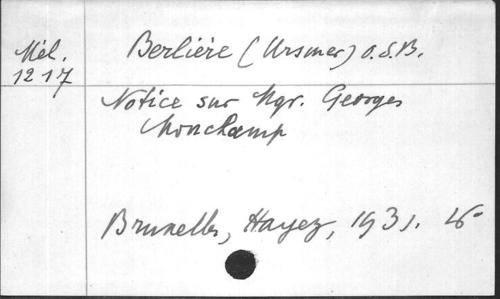 Mél.
1217
Berlière (Ursmer) O.S.B.
Notice sur Mgr. Georges
Monchamp
Bruxelles, Hayez, 1931.